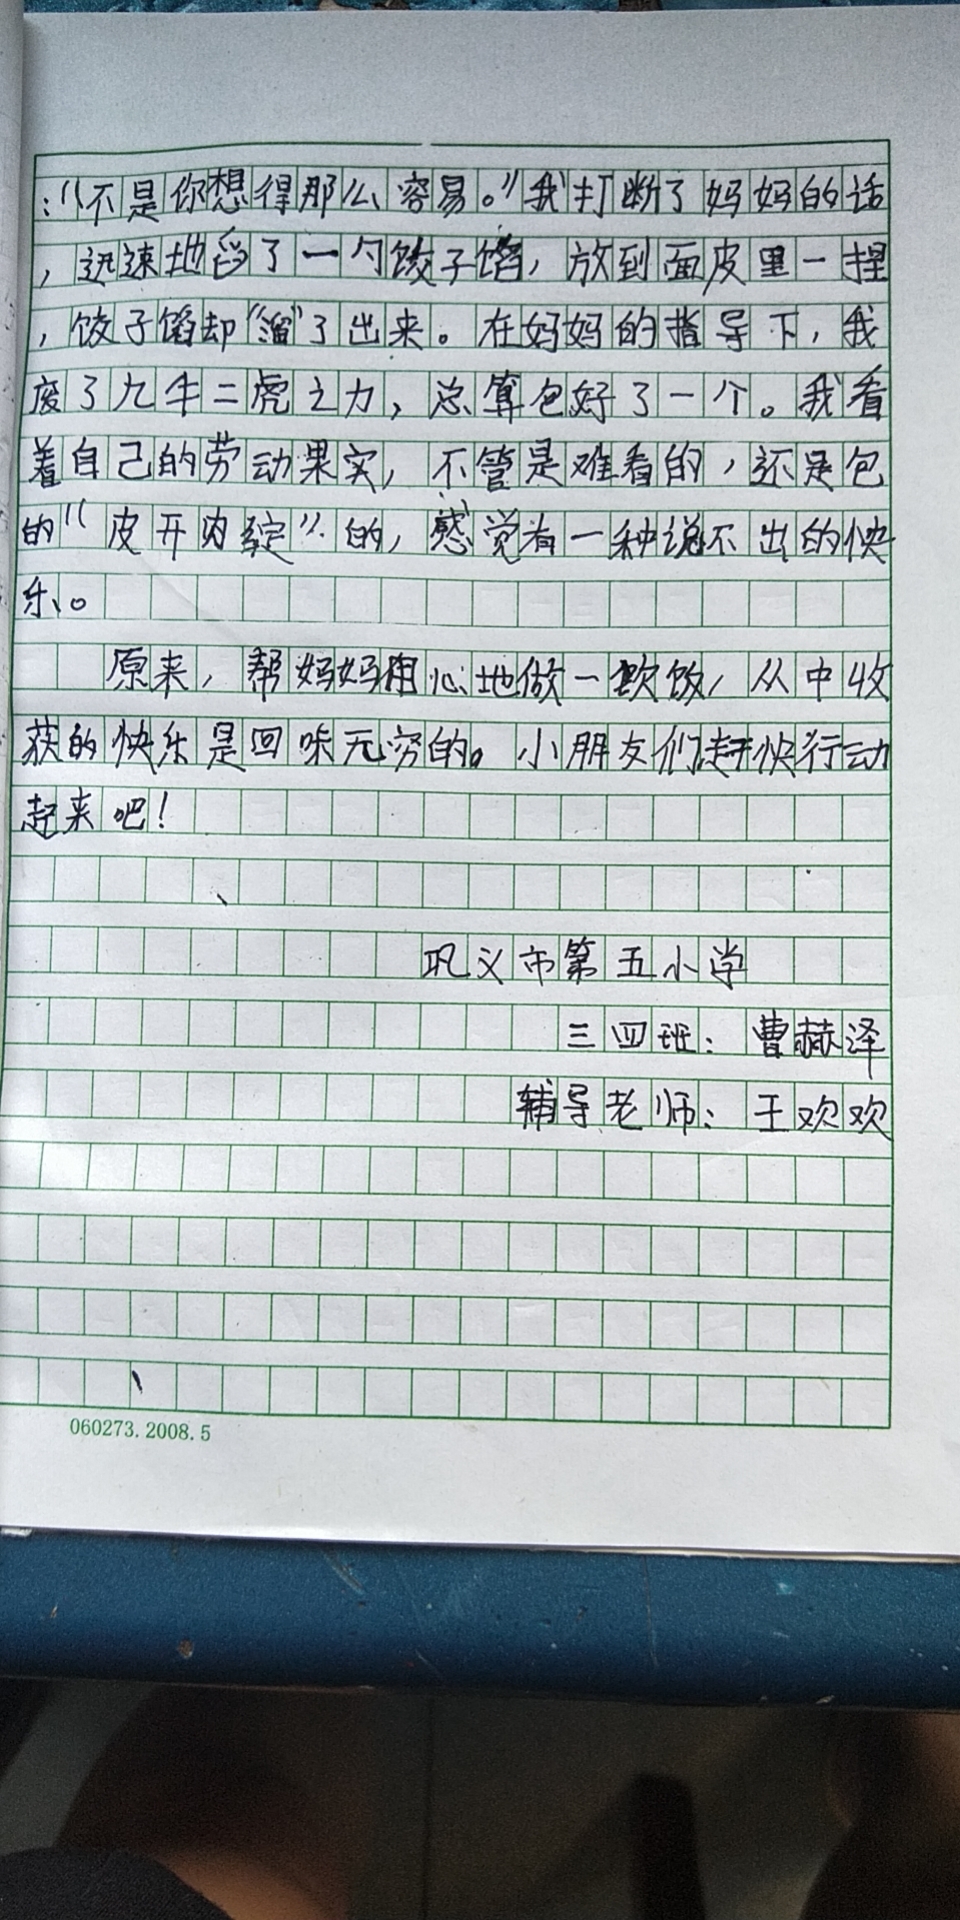 ：“不是你想得那么容易。”我打断了妈妈的话
，迅速地舀了一勺饺子馅，放到面皮里一捏
，饺子馅却“溜”了出来。在妈妈的指导下，我
废了九牛二虎之力，总算包好了一个。我看
着自己的劳动果实，不管是难看的，还是包
的“皮开肉绽”的，感觉有一种说不出的快
乐。
原来，帮妈妈用心地做一顿饭，从中收
获的快乐是回味无穷的。小朋友们赶快行动
起来吧！
巩义市第五小学
三四班：曹赫泽
辅导老师：王欢欢
060273.2008.5